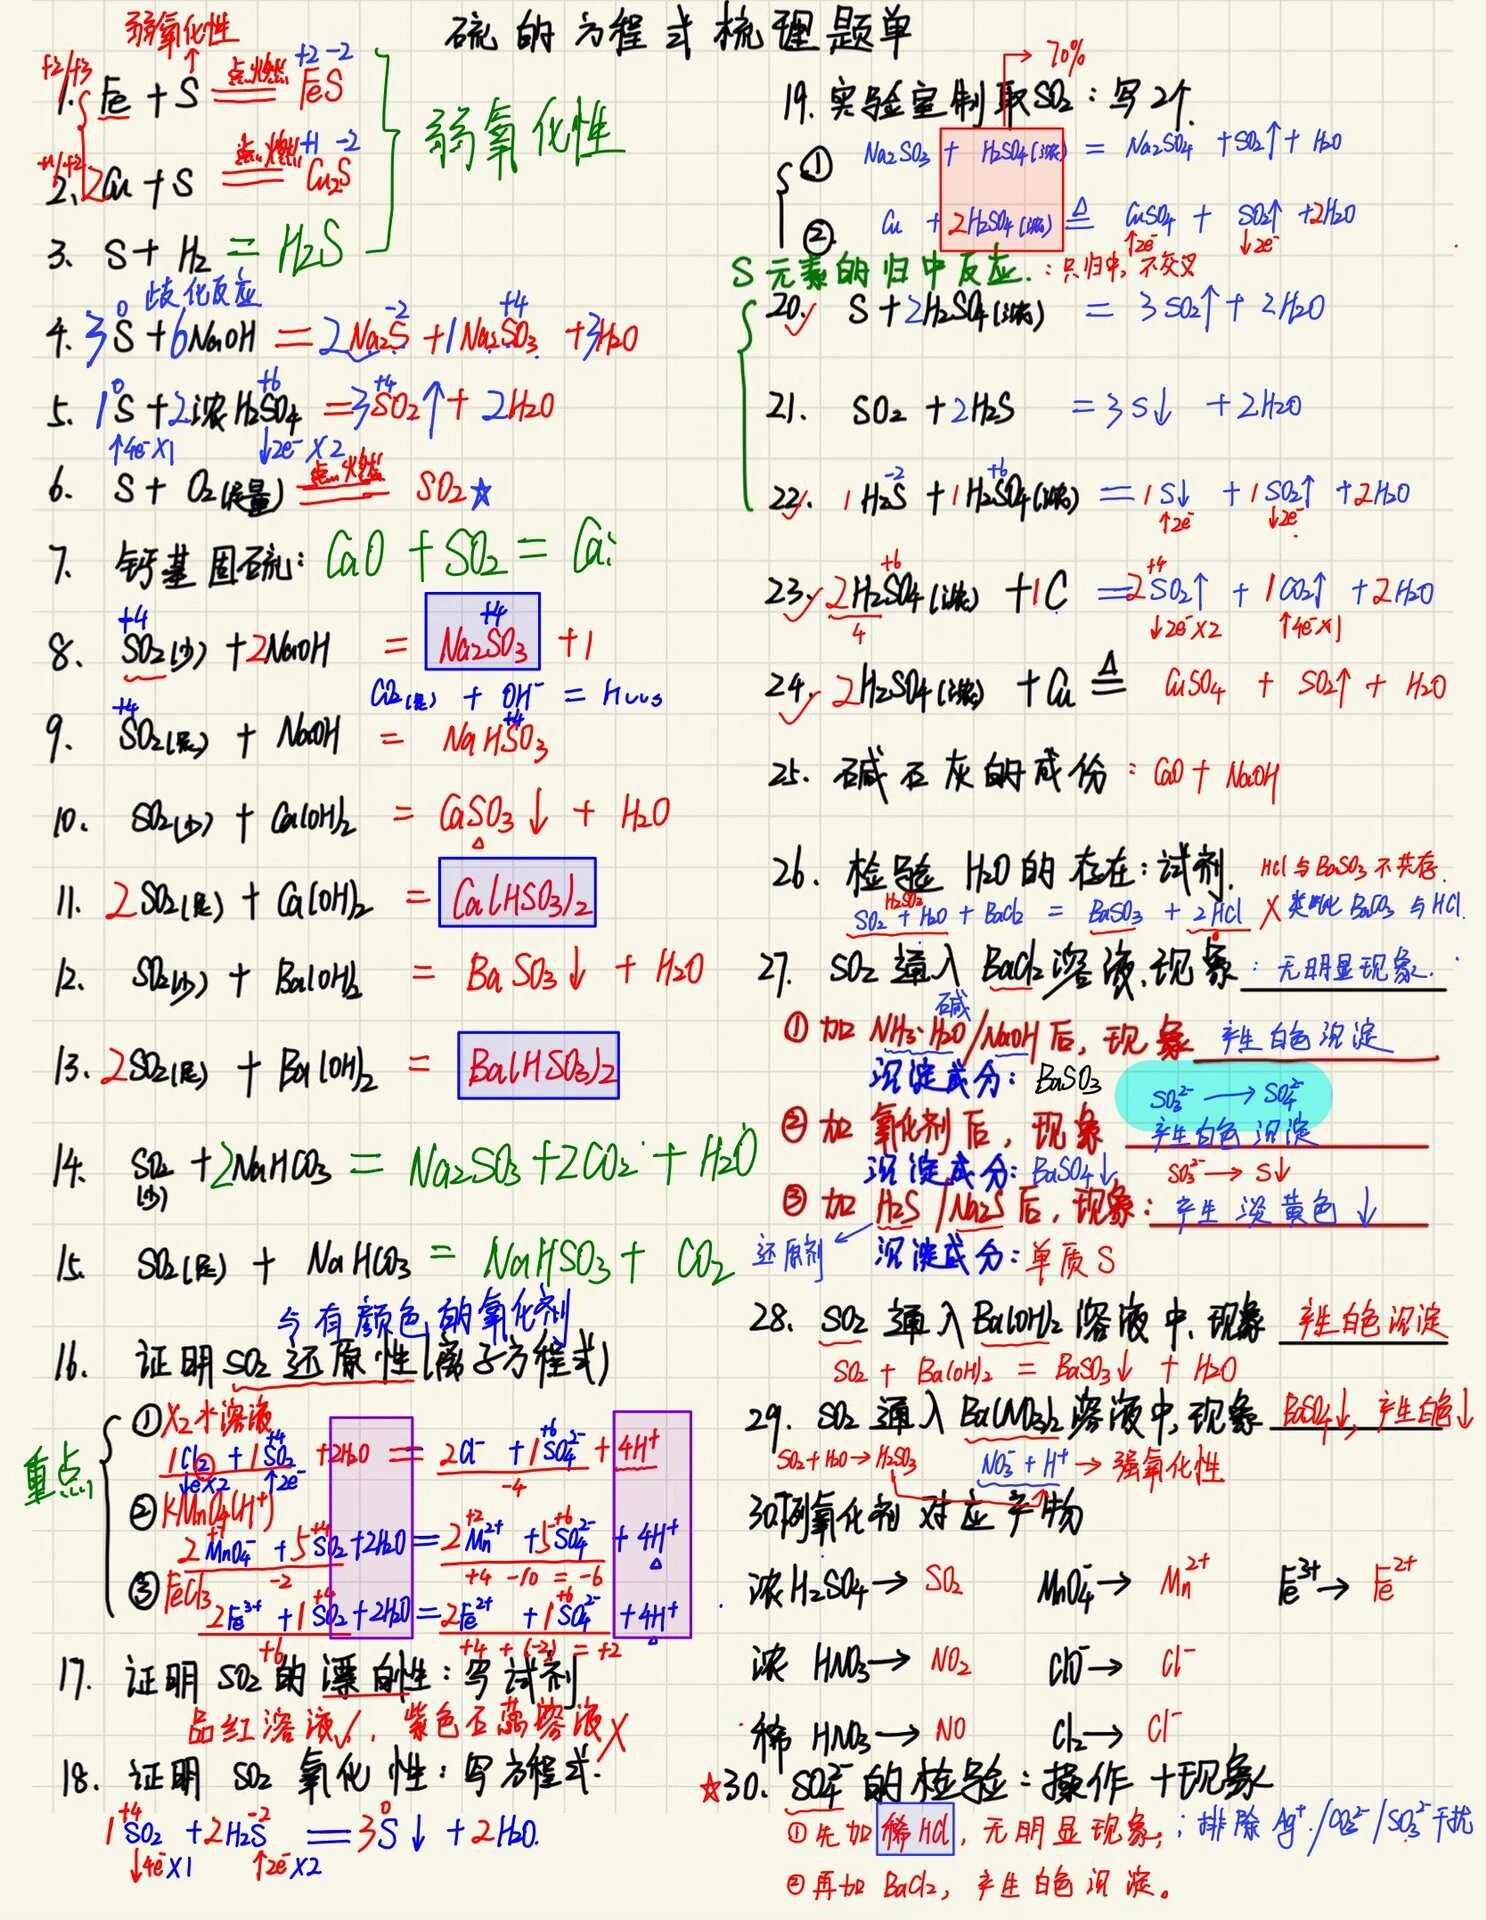 硫的方程式梳理题单
弱氧化性
+2/+3
+2 -2
1. Fe + S 点燃 FeS
+1/+2
+1 -2
2. 2Cu + S 点燃 Cu2S
弱氧化性
3. S + H2 = H2S
歧化反应
0 -2 +4
4. 3S + 6NaOH = 2Na2S + 1Na2SO3 + 3H2O
0 +6 +4
5. 1S + 2浓H2SO4 = 3SO2↑ + 2H2O
↑4e⁻×1 ↓2e⁻×2
6. S + O2(足量) 点燃 SO2☆
7. 钙基固硫: CaO + SO2 =
+4 +4
8. SO2(少) + 2NaOH = Na2SO3 + 1
CO2(足) + OH⁻ =
+4 +4
9. SO2(足) + NaOH = NaHSO3
10. SO2(少) + Ca(OH)2 = CaSO3↓ + H2O
11. 2SO2(足) + Ca(OH)2 = Ca(HSO3)2
12. SO2(少) + Ba(OH)2 = BaSO3↓ + H2O
13. 2SO2(足) + Ba(OH)2 = Ba(HSO3)2
14. SO2(少) + 2NaHCO3 = Na2SO3 + 2CO2 + H2O
15. SO2(足) + NaHCO3 = NaHSO3 + CO2
与有颜色的氧化剂
16. 证明SO2还原性(离子方程式)
重点
①X2水溶液
+4 +6
1Cl2 + 1SO2 + 2H2O = 2Cl⁻ + 1SO4²⁻ + 4H⁺
↓e×2 ↑2e⁻ -4
②KMnO4(H⁺)
+7 +4 +2 +6
2MnO4⁻ + 5SO2 + 2H2O = 2Mn²⁺ + 5SO4²⁻ + 4H⁺
-2 +4 -10 = -6
③FeCl3
+4 +6
2Fe³⁺ + 1SO2 + 2H2O = 2Fe²⁺ + 1SO4²⁻ + 4H⁺
+6 +4 + (-2) = +2
17. 证明SO2的漂白性: 写试剂
品红溶液✓, 紫色石蕊溶液X
18. 证明SO2氧化性: 写方程式.
+4 -2 0
1SO2 + 2H2S = 3S↓ + 2H2O.
↓4e⁻×1 ↑2e⁻×2
70%
19. 实验室制取SO2: 写2个.
① Na2SO3 + H2SO4(浓) = Na2SO4 + SO2↑ + H2O
② Cu + 2H2SO4(浓) △ CuSO4 + SO2↑ + 2H2O
↑2e⁻ ↓2e⁻
S元素的归中反应.: 只归中, 不交叉
20. S + 2H2SO4(浓) = 3SO2↑ + 2H2O
21. SO2 + 2H2S = 3S↓ + 2H2O
-2 +6
22. 1H2S + 1H2SO4(浓) = 1S↓ + 1SO2↑ + 2H2O
↑2e⁻ ↓2e⁻
+6 +4
23. 2H2SO4(浓) + 1C = 2SO2↑ + 1CO2↑ + 2H2O
4 ↓2e⁻×2 ↑4e⁻×1
24. 2H2SO4(浓) + Cu △ CuSO4 + SO2↑ + H2O
25. 碱石灰的成份: CaO + NaOH
26. 检验H2O的存在: 试剂.
HCl与BaSO3不共存.
H2SO3
SO2 + H2O + BaCl2 = BaSO3 + 2HCl X 类比 BaCO3 与HCl.
27. SO2通入BaCl2溶液, 现象: 无明显现象.
碱
①加NH3·H2O/NaOH后, 现象 产生白色沉淀
沉淀成分: BaSO3
SO3²⁻ → SO4²⁻
②加氧化剂后, 现象 产生白色沉淀
沉淀成分: BaSO4↓ SO3²⁻ → S↓
③加H2S/Na2S后, 现象: 产生淡黄色↓
还原剂 沉淀成分: 单质S
28. SO2通入Ba(OH)2溶液中, 现象 产生白色沉淀
SO2 + Ba(OH)2 = BaSO3↓ + H2O
29. SO2通入Ba(NO3)2溶液中, 现象 BaSO4↓, 产生白色↓
SO2+H2O→H2SO3 NO3⁻ + H⁺ → 强氧化性
30. 下列氧化剂对应产物
浓H2SO4→ SO2 MnO4⁻→ Mn²⁺ Fe³⁺→ Fe²⁺
浓HNO3→ NO2 ClO⁻→ Cl⁻
稀HNO3→ NO Cl2→ Cl⁻
☆30. SO4²⁻的检验: 操作+现象
①先加稀HCl, 无明显现象; 排除Ag⁺/CO3²⁻/SO3²⁻干扰
②再加BaCl2, 产生白色沉淀。